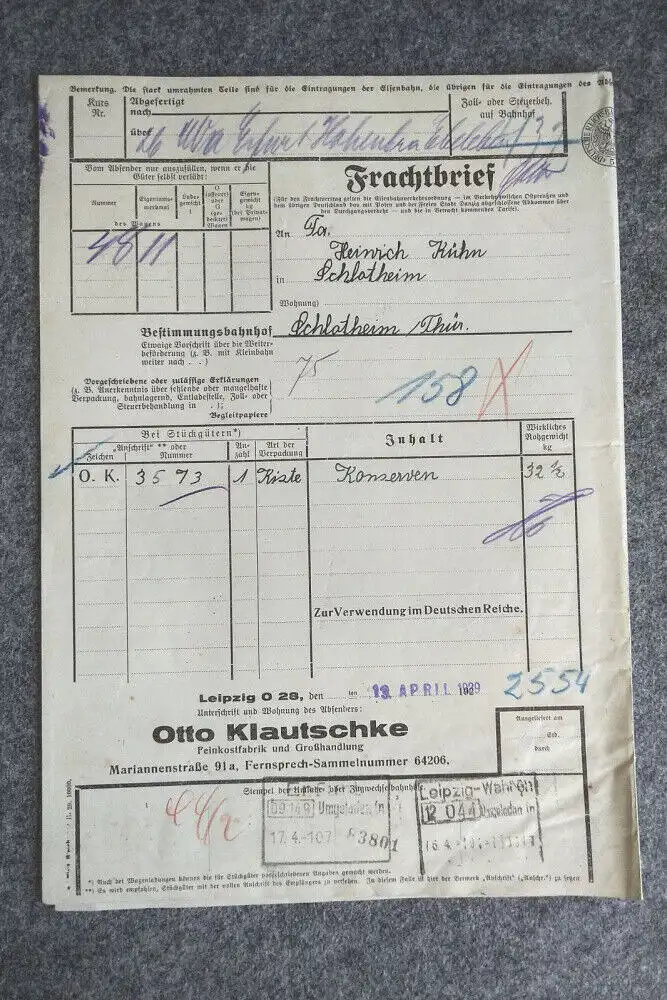 Bemerkung. Die stark umrahmten Teile sind für die Eintragungen der Eisenbahn, die übrigen für die Eintragungen des
Kurs Nr.
Abgefertigt
nach
über
Zoll- oder Steuerbeh. auf Bahnhof
Erfurt
Vom Absender nur auszufüllen, wenn er die Güter selbst verlädt:
Nummer
Eigentumsmerkmal
Ladegewicht
O (offener) oder G (gedeckter) Wagen
Eigengewicht kg (bei Privatwagen)
des Wagens
4811
Frachtbrief
(Für den Frachtvertrag gelten die Eisenbahnverkehrsordnung — im Verkehr zwischen Ostpreußen und
dem übrigen Deutschland das mit Polen und der Freien Stadt Danzig abgeschlossene Abkommen über
den Durchgangsverkehr — und die in Betracht kommenden Tarife).
An Fa.
Heinrich Kühn
in Schlotheim
Wohnung)
Bestimmungsbahnhof Schlotheim /Thür.
Etwaige Vorschrift über die Weiter-
beförderung (z. B. mit Kleinbahn
weiter nach . . )
75
158
Vorgeschriebene oder zulässige Erklärungen
(z. B. Anerkenntnis über fehlende oder mangelhafte
Verpackung, bahnlagernd, Entladestelle, Zoll- oder
Steuerbehandlung in . );
Begleitpapiere
Bei Stückgütern*)
Zeichen
"Anschrift" ** oder Nummer
Anzahl
Art der Verpackung
Inhalt
Wirkliches Rohgewicht kg
O. K. 3573 1 Kiste Konserven 32 ½
Zur Verwendung im Deutschen Reiche.
Leipzig O 28, den ten 13. APRIL 1939
2554
Unterschrift und Wohnung des Absenders:
Otto Klautschke
Feinkostfabrik und Großhandlung
Mariannenstraße 91a, Fernsprech-Sammelnummer 64206.
Ausgeliefert am
durch
Stempel der Umlade- oder Zugwechselbahnhöfe
09149 Umgeladen in
17.4.-107 63801
Leipzig-Wahren
R 044 Umgeladen in
*) Auch bei Wagenladungen können die für Stückgüter vorgeschriebenen Angaben gemacht werden.
**) Es wird empfohlen, Stückgüter mit der vollen Anschrift des Empfängers zu versehen. In diesem Falle ist hier der Vermerk „Anschrift“ („Anschr.“) zu setzen